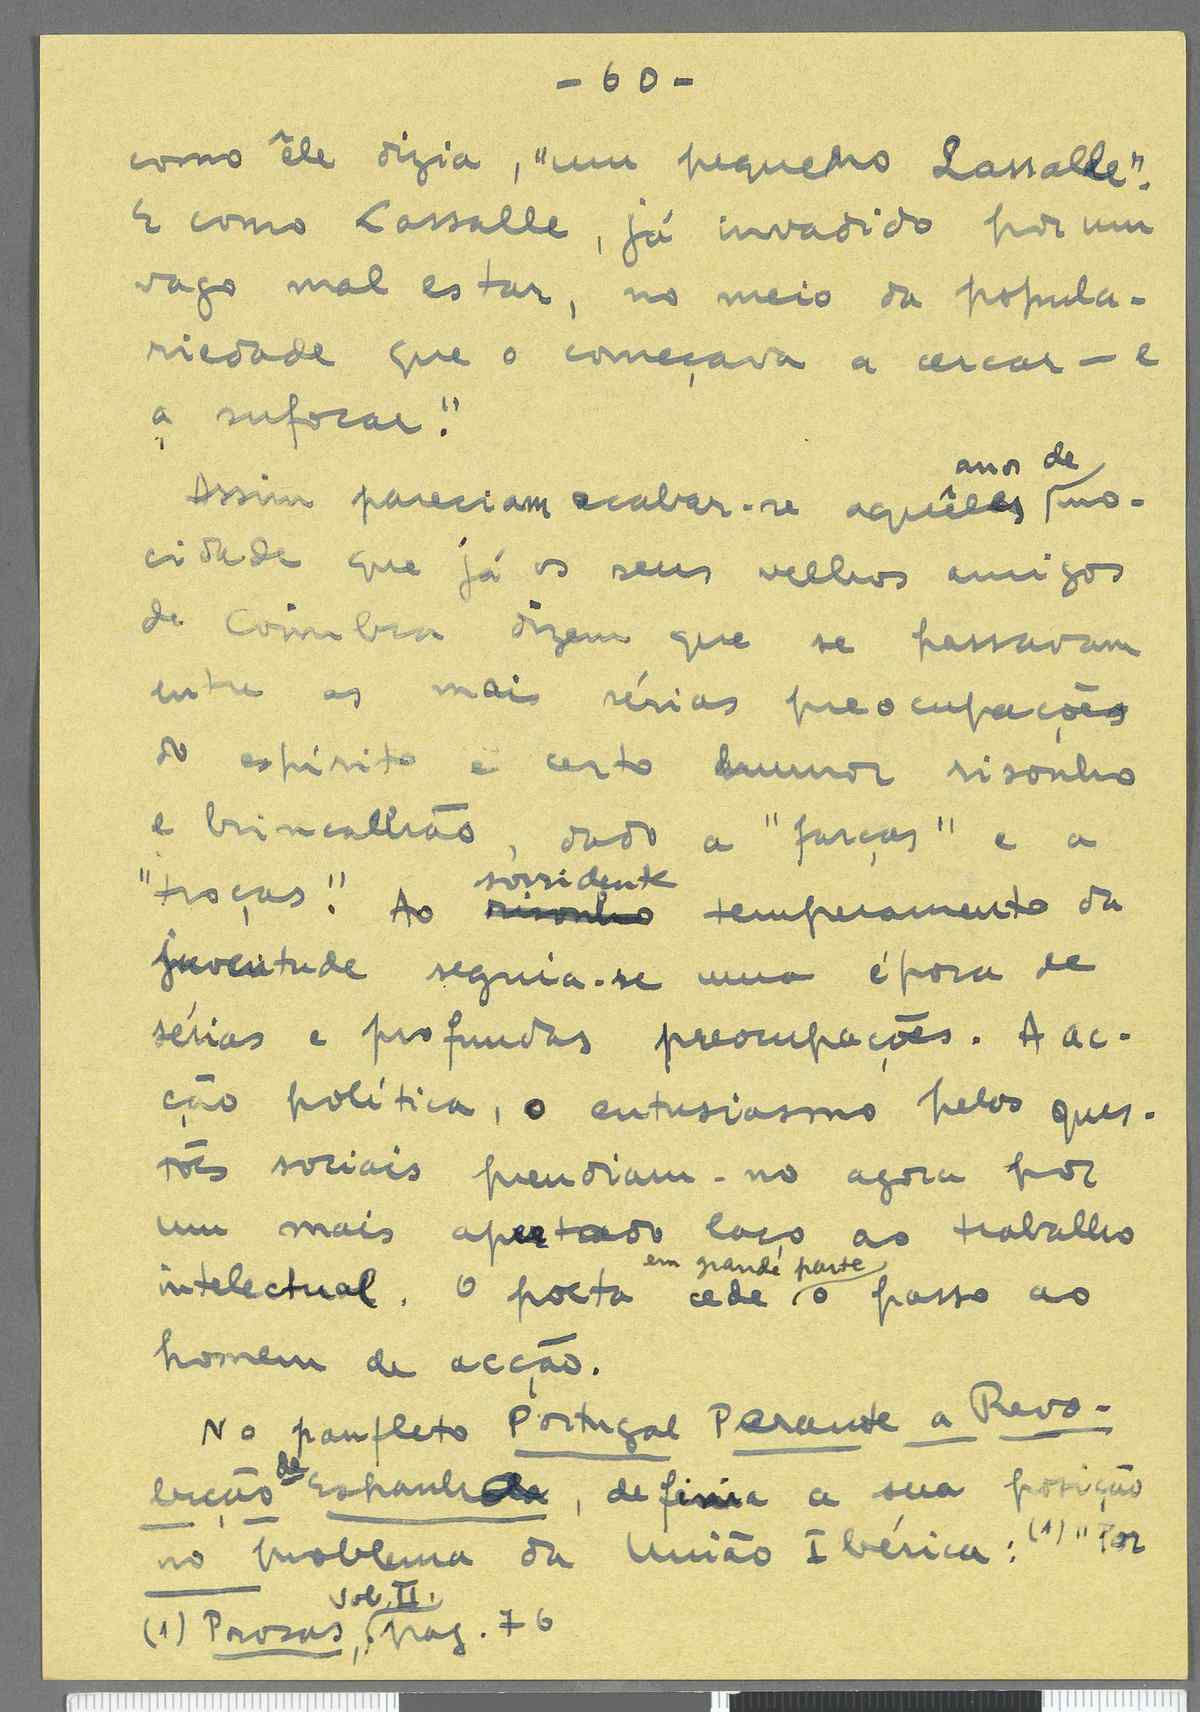 - 60 -
como êle dizia, "um pequeno Lassalle".
E como Lassalle, já invadido por um
vago mal estar, no meio da popula-
riedade que o começava a cercar — e
a sufocar."
anos de
Assim pareciam acabar-se aquêles mo-
cidade que já os seus velhos amigos
de Coimbra dizem que se passavam
entre as mais sérias preocupações
do espírito e certo humor risonho
e brincalhão, dado a "farças" e a
"troças". Ao risonho temperamento da
sorridente
juventude seguia-se uma época de
sérias e profundas preocupações. A ac-
ção política, o entusiasmo pelas ques-
tões sociais prendiam-no agora por
um mais apertado laço ao trabalho
em grande parte
intelectual. O poeta cede o passo ao
homem de acção.
No panfleto Portugal Perante a Revo-
lução de Espanha, definia a sua posição
no problema da União Ibérica: (1) "Por
vol. II.
(1) Prosas, pag. 76